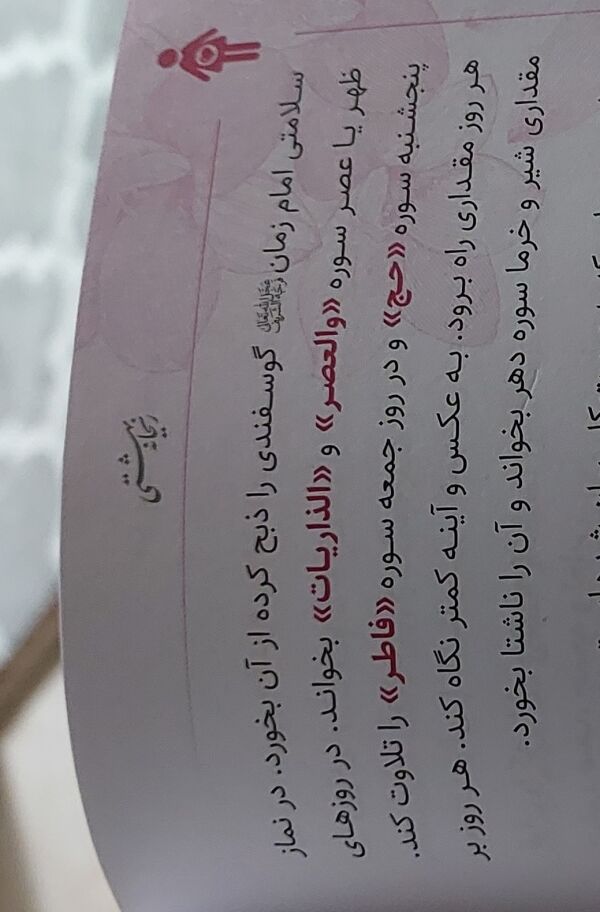 ریحانه بهشتی
سلامتی امام زمان عجل الله تعالی فرجه الشریف گوسفندی را ذبح کرده از آن بخورد. در نماز
ظهر یا عصر سوره «والعصر» و «الذاریات» بخواند. در روزهای
پنجشنبه سوره «حج» و در روز جمعه سوره «فاطر» را تلاوت کند.
هر روز مقداری راه برود. به عکس و آینه کمتر نگاه کند. هر روز بر
مقداری شیر و خرما سوره دهر بخواند و آن را ناشتا بخورد.